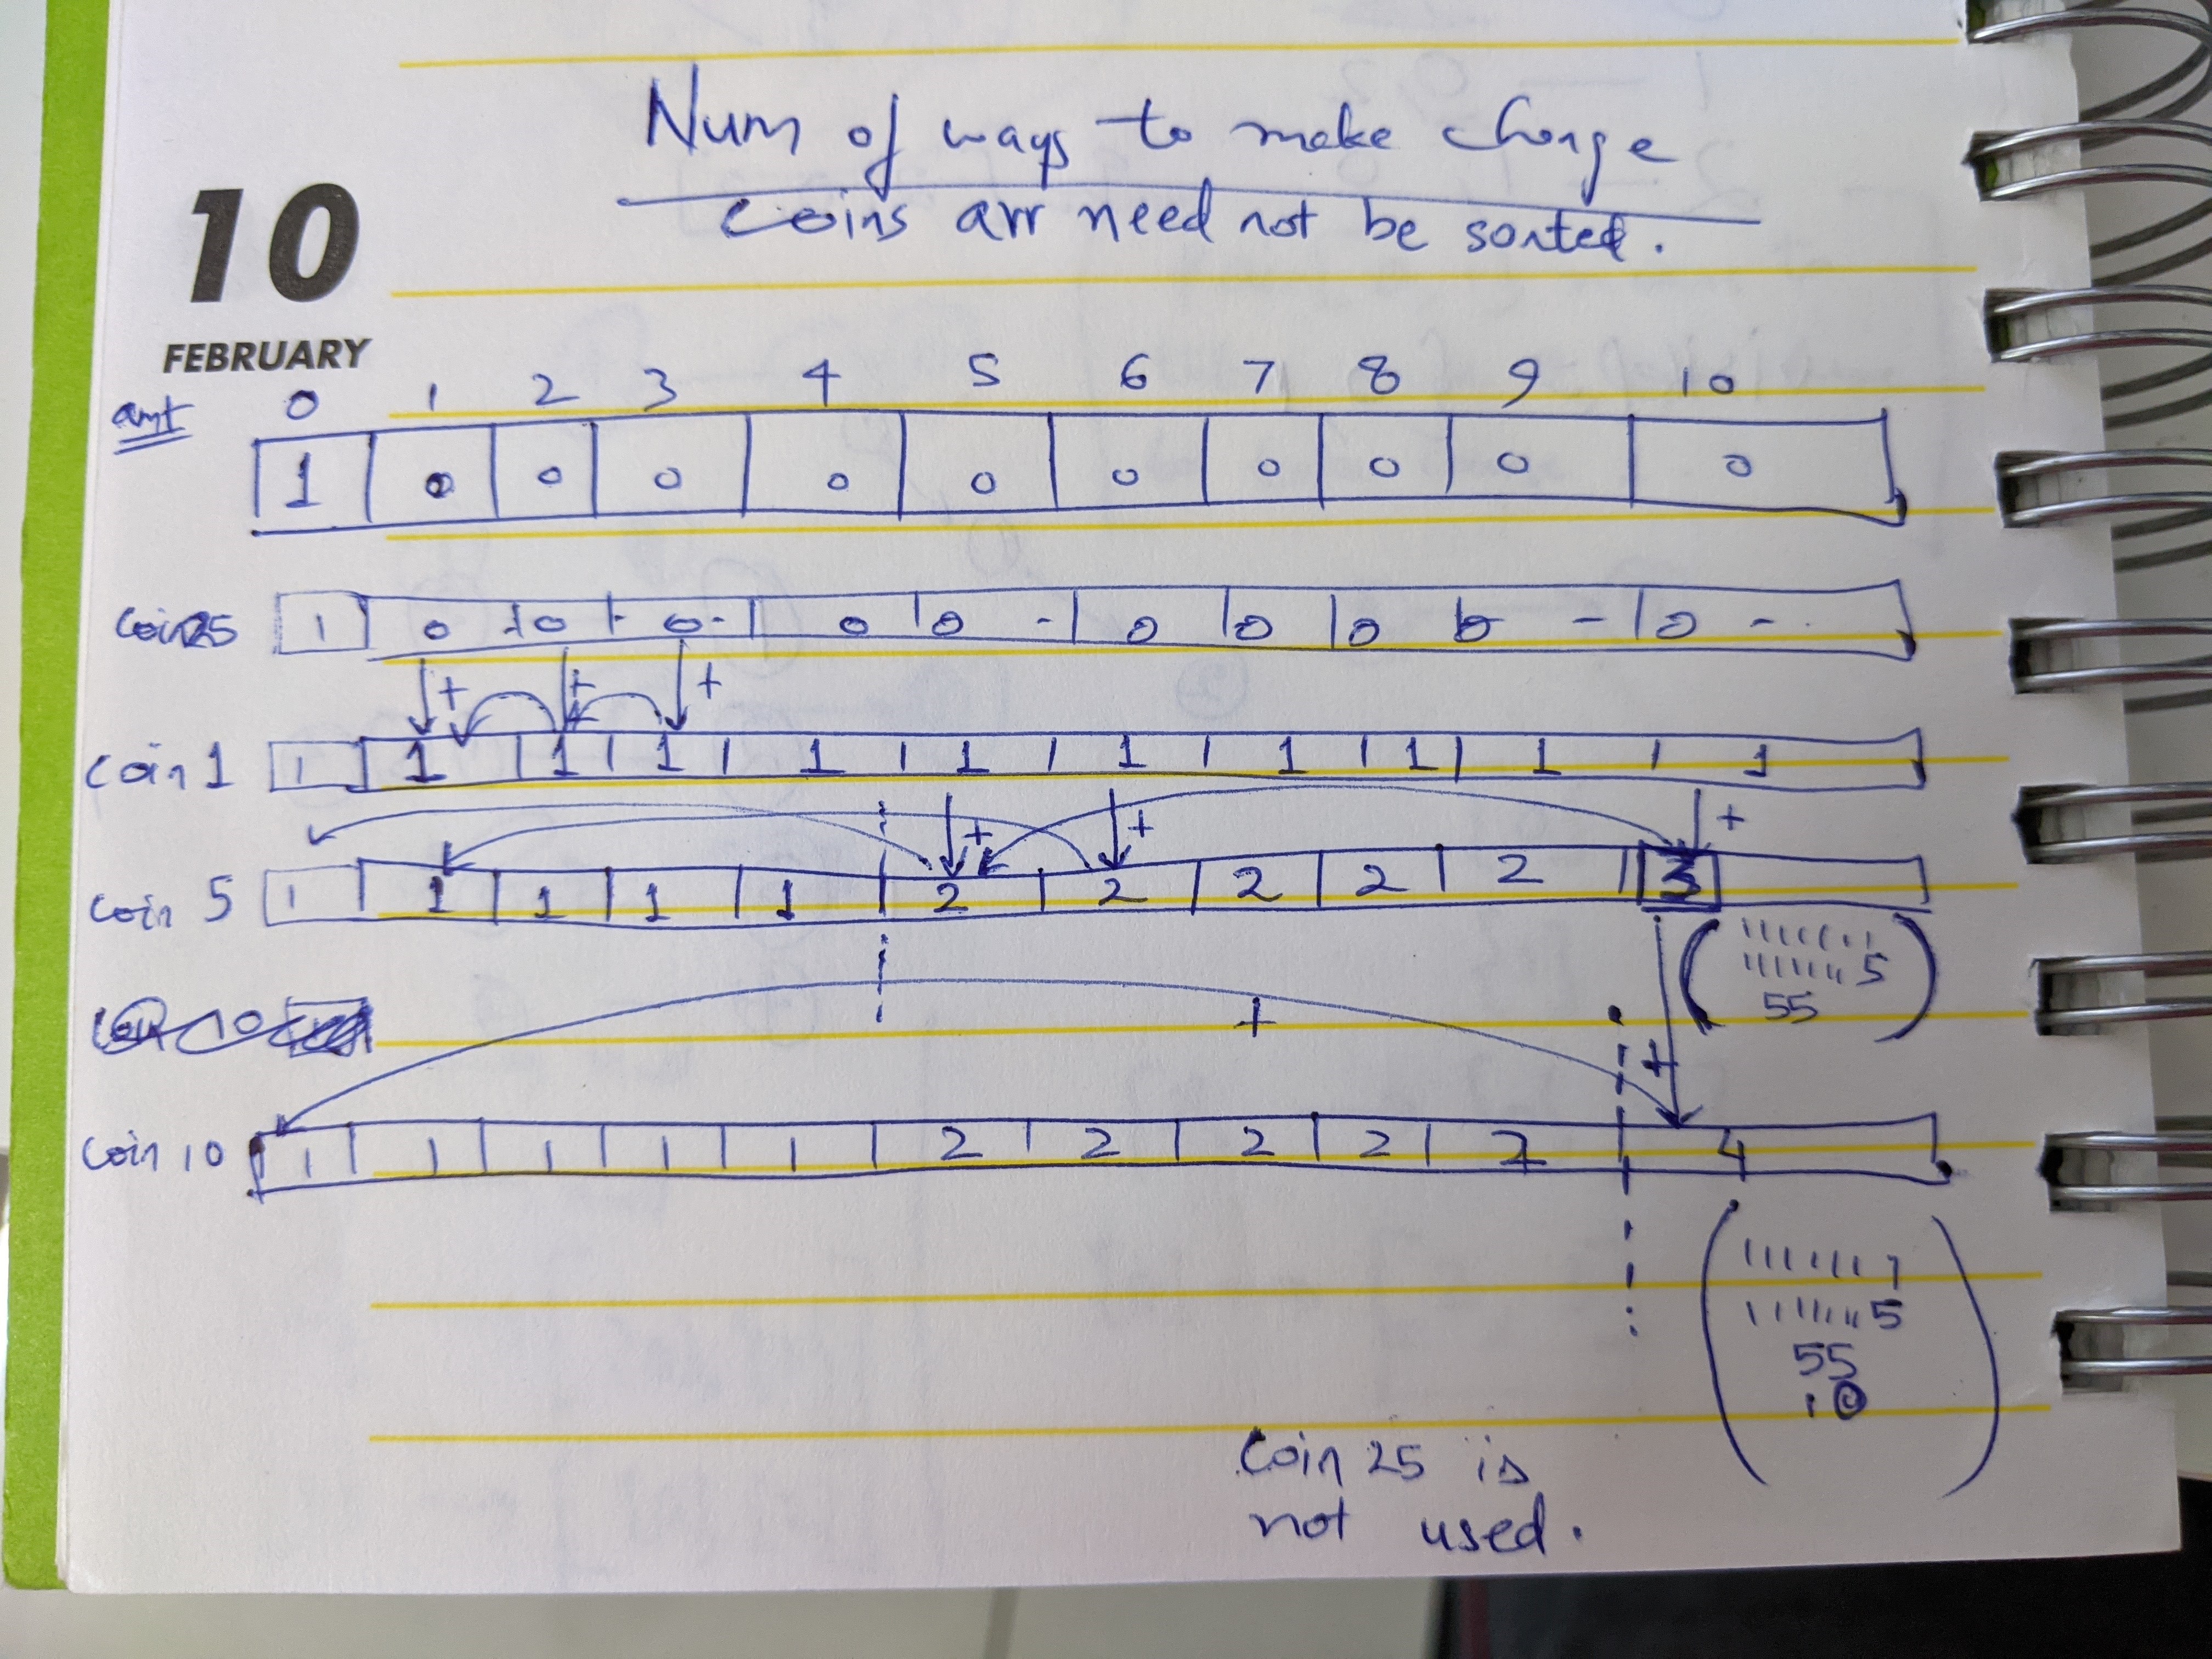 Num of ways to make change
coins arr need not be sorted.
10
FEBRUARY
amt 0 1 2 3 4 5 6 7 8 9 10
1 0 0 0 0 0 0 0 0 0 0
Coin 25 1 0 0 0 0 0 0 0 0 0 0
+ + +
Coin 1 1 1 1 1 1 1 1 1 1 1 1
+ + +
Coin 5 1 1 1 1 1 2 2 2 2 2 3
1111111
1111111 5
55
+ +
Coin 10 1 1 1 1 1 2 2 2 2 2 4
1111111
1111111 5
55
10
Coin 25 is
not used.